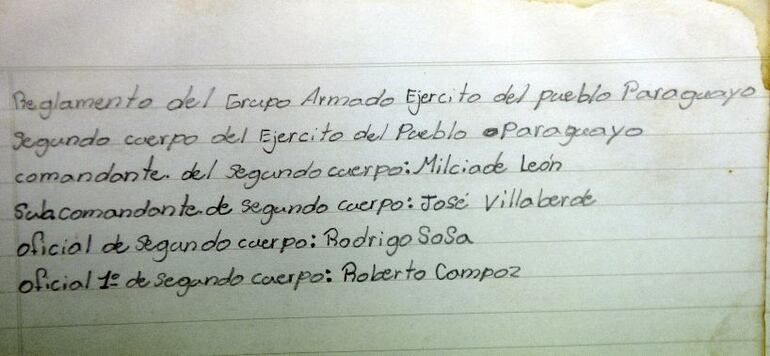 Reglamento del Grupo Armado Ejercito del pueblo Paraguayo
Segundo cuerpo del Ejercito del Pueblo Paraguayo
comandante. del segundo cuerpo: Milciade León
Subcomandante. de segundo cuerpo: José Villaberde
oficial de segundo cuerpo: Rodrigo SoSa
oficial 1º de segundo cuerpo: Roberto Campoz